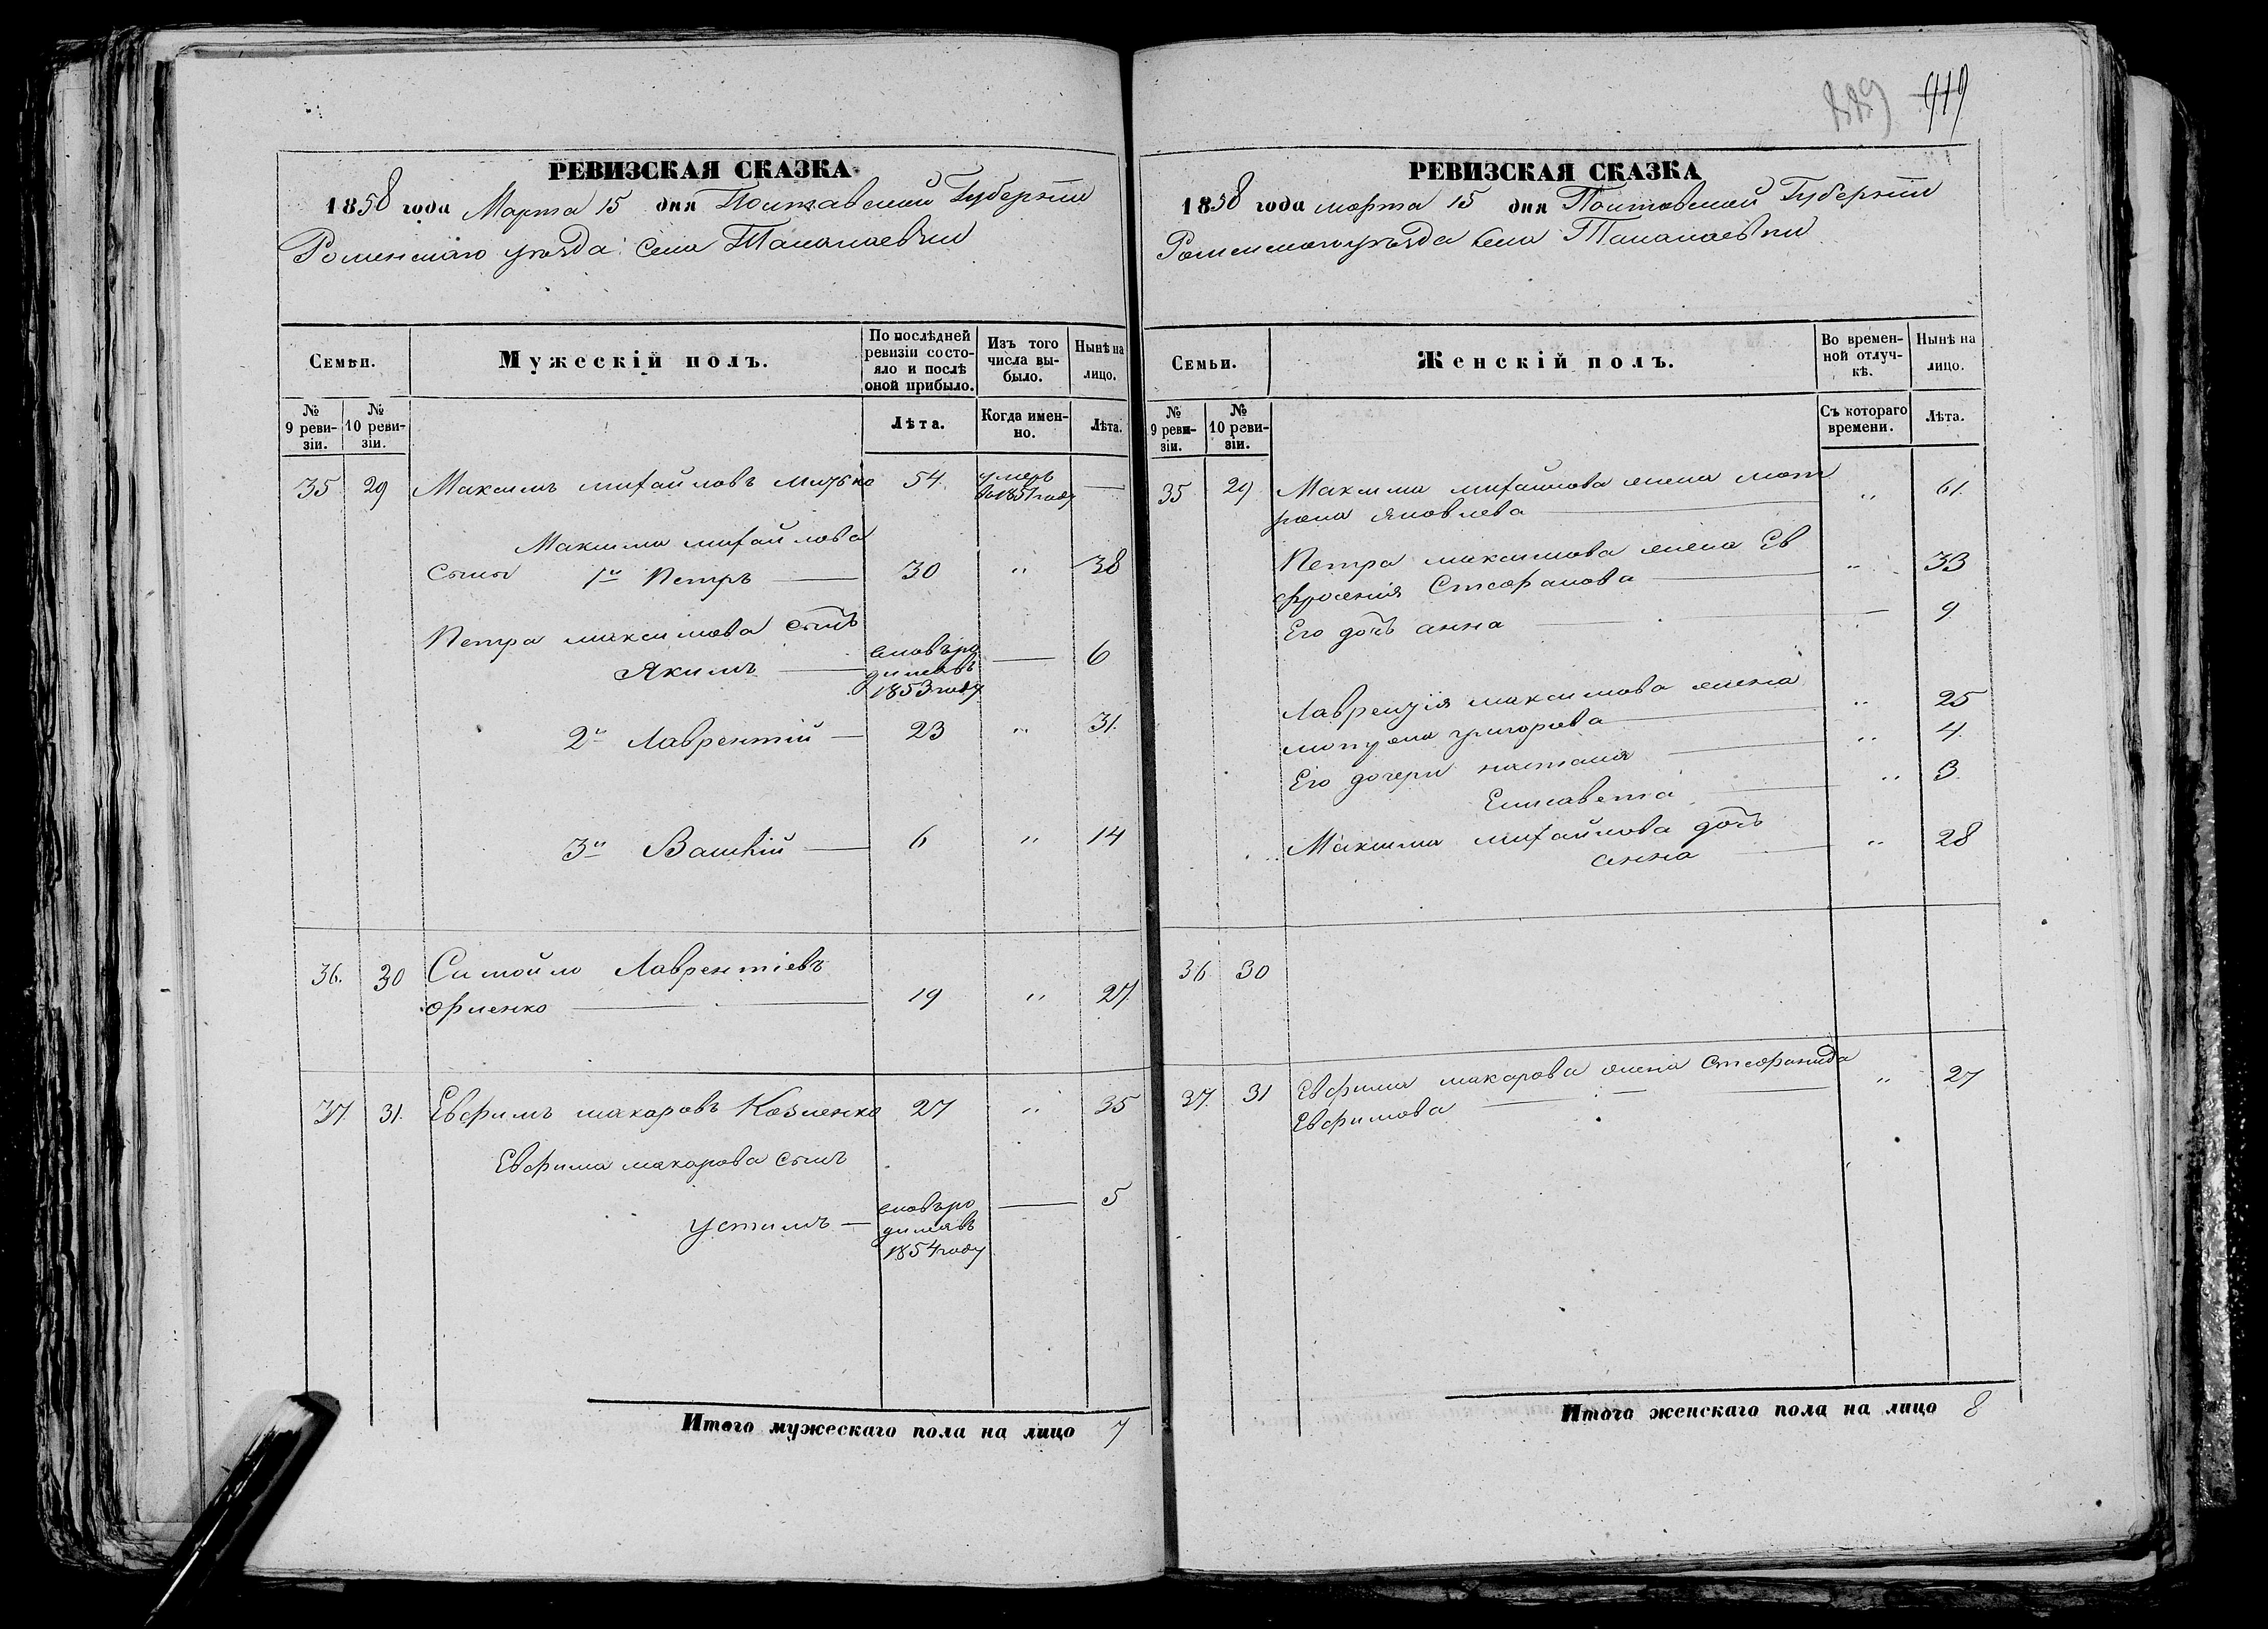 889 919
РЕВИЗСКАЯ СКАЗКА
1858 года Марта 15 дня Полтавской Губернии
Роменскаго уѣзда села Талалаевки
Семьи.
Мужескій полъ.
По послѣдней ревизіи состояло и послѣ оной прибыло.
Изъ того числа выбыло.
Нынѣ на лицо.
№ 9 ревизіи.
№ 10 ревизіи.
Лѣта.
Когда именно.
Лѣта.
35 29 Максимъ михайловъ 54 умеръ в 1851 году —
Максима михайлова
сыны 1й Петръ — 30 " 38
Петра максимова сынъ
Якимъ — новоро
дился въ — 6
1853 году
2й Лаврентій — 23 " 31.
3й Василій — 6 " 14
36. 30 Самойло Лаврентіевъ
— 19 " 27.
37. 31. Евфимъ макаровъ Козленко 27 " 35
Евфима макарова сынъ
устимъ — новоро — 5
дился въ
1854 году
Итого мужескаго пола на лицо 7
РЕВИЗСКАЯ СКАЗКА
1858 года марта 15 дня Полтавской Губернии
Роменскаго уѣзда села Талалаевки
Семьи.
Женскій полъ.
Во временной отлучкѣ.
Нынѣ на лицо.
№ 9 ревизіи.
№ 10 ревизіи.
Съ котораго времени.
Лѣта.
35 29 Максима михайлова жена мот
рона яковлева — " 61.
Петра максимова жена Ев
фросенія Стефанова — " 33
Его дочь анна — 9
Лаврентія максимова жена
григорова — " 25
Его дочери наталія — " 4.
Елисавета — " 3.
Максима михайлова дочь
анна — " 28
36 30
37. 31 Евфима макарова жена Стефанида
Евфимова — " 27
Итого женскаго пола на лицо 8